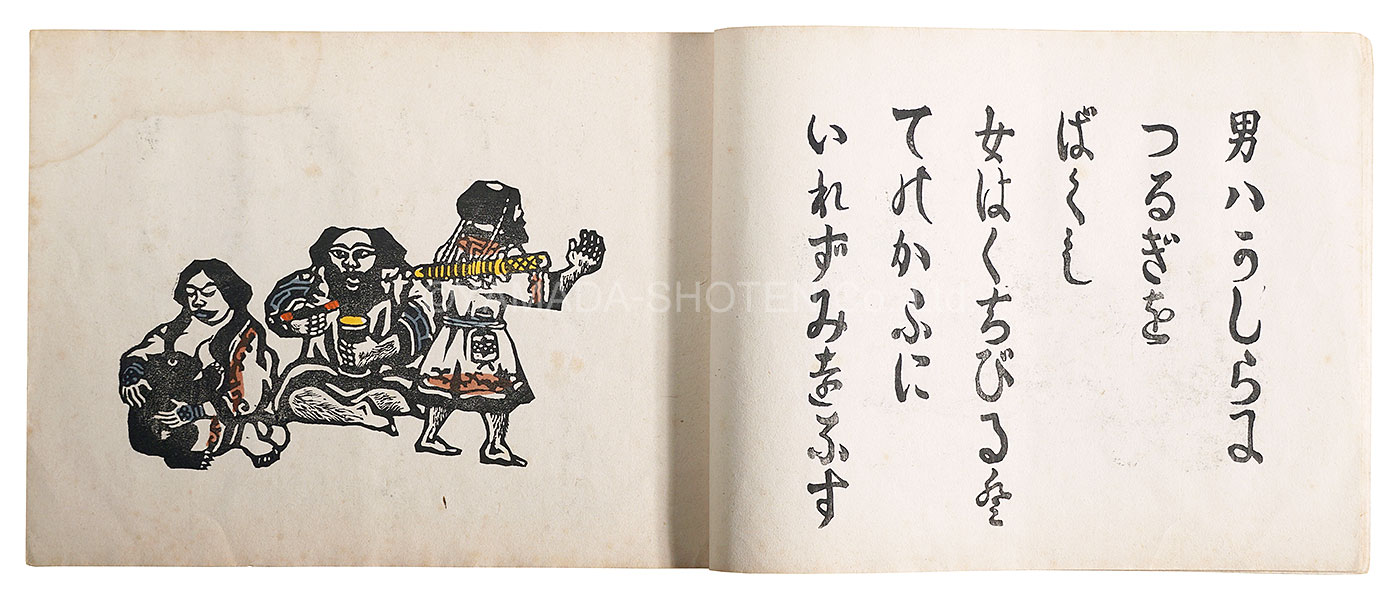 男ハうしろに
つるぎを
ばく
女はくちびると
てのかふに
いれずみをなす
YAMADA SHOTEN